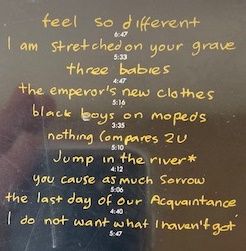 feel so different
6:47
I am stretched on your grave
5:33
three babies
4:47
the emperor's new clothes
5:16
black boys on mopeds
3:35
nothing compares 2U
5:10
Jump in the river*
4:12
you cause as much sorrow
5:06
the last day of our Acquaintance
4:40
I do not want what I haven't got
5:47